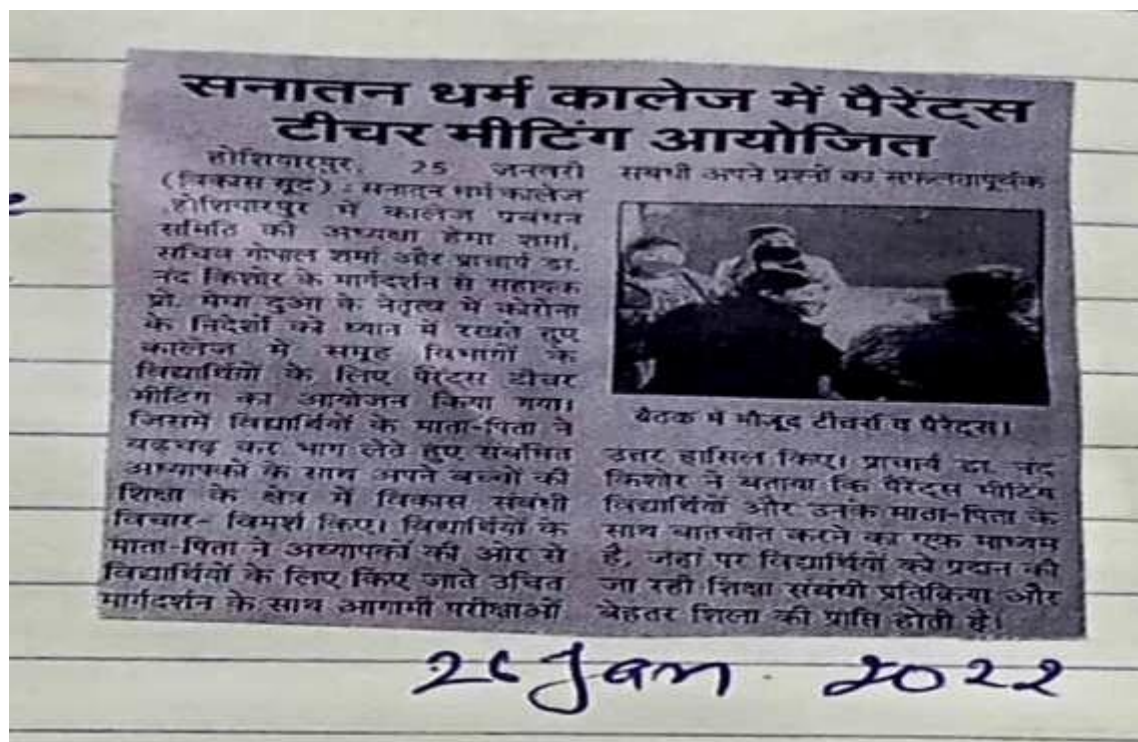 सनातन धर्म कालेज में पैरेंट्स
टीचर मीटिंग आयोजित
होशियारपुर, 25 जनवरी
(विकास सूद) : सनातन धर्म कालेज
होशियारपुर में कालेज प्रबंधन
समिति की अध्यक्षा हेमा शर्मा,
सचिव गोपाल शर्मा और प्राचार्य डा.
नंद किशोर के मार्गदर्शन से सहायक
प्रो. मेघा दुआ के नेतृत्व में कोरोना
के निर्देशों को ध्यान में रखते हुए
कालेज में समूह विभागों के
विद्यार्थियों के लिए पैरेंट्स टीचर
मीटिंग का आयोजन किया गया।
जिसमें विद्यार्थियों के माता-पिता ने
बढ़चढ़ कर भाग लेते हुए संबंधित
अध्यापकों के साथ अपने बच्चों की
शिक्षा के क्षेत्र में विकास संबंधी
विचार- विमर्श किए। विद्यार्थियों के
माता-पिता ने अध्यापकों की ओर से
विद्यार्थियों के लिए किए जाते उचित
मार्गदर्शन के साथ आगामी परीक्षाओं
संबंधी अपने प्रश्नों का सफलतापूर्वक
बैठक में मौजूद टीचर्स व पैरेंट्स।
उत्तर हासिल किए। प्राचार्य डा. नंद
किशोर ने बताया कि पैरेंट्स मीटिंग
विद्यार्थियों और उनके माता-पिता के
साथ बातचीत करने का एक माध्यम
है, जहां पर विद्यार्थियों को प्रदान की
जा रही शिक्षा संबंधी प्रतिक्रिया और
बेहतर शिला की प्राप्ति होती है।
26 Jan. 2022